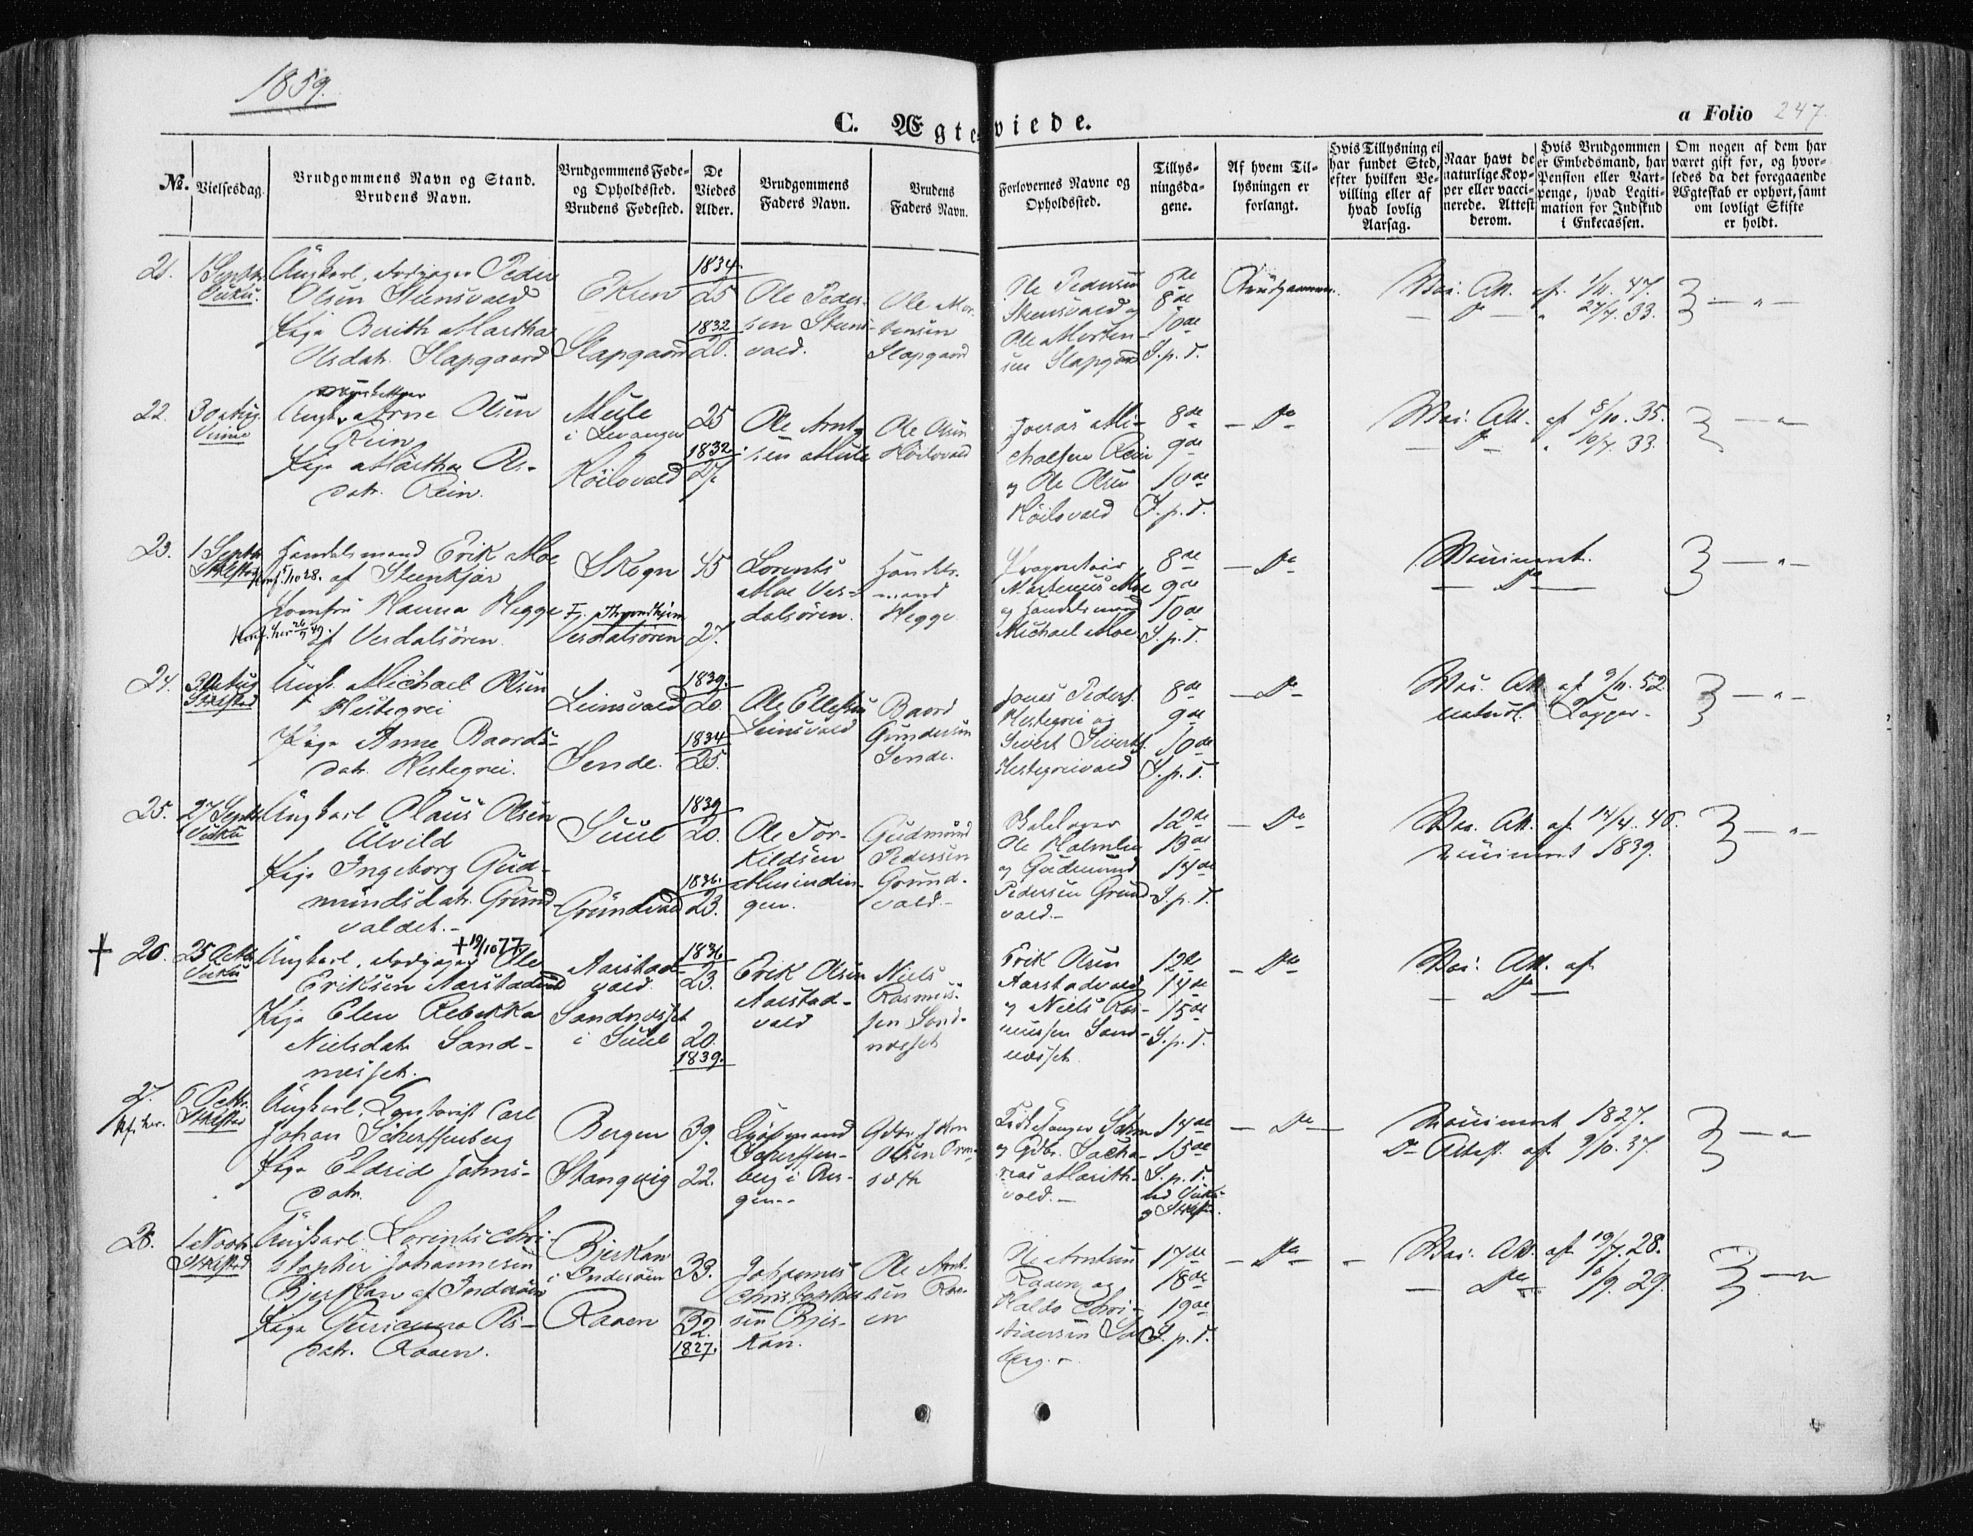 1859.
C. Ægteviede.
a Folio 247.
No.
Vielsesdag.
Brudgommens Navn og Stand.
Brudens Navn.
Brudgommens Føde-
og Opholdssted.
Brudens Fødested.
De
Viedes
Alder.
Brudgommens
Faders Navn.
Brudens
Faders Navn.
Forlovernes Navne og
Opholdssted.
Tillys-
ningsda-
gene.
Af hvem Til-
lysningen er
forlangt.
Hvis Tillysning ei
har fundet Sted,
efter hvilken Be-
villing eller af
hvad lovlig
Aarsag.
Naar havt de
naturlige Kop-
per eller vacci-
nerede. Attest
derom.
Hvis Brudgommen
er Embedsmand, har
Pension eller Vart-
penge, hvad Legiti-
mation for Indskud
i Enkecassen.
Om nogen af dem har
været gift før, og hvor-
ledes da det foregaaende
Ægteskab er ophørt, samt
om lovligt Skifte
er holdt.
21.
1 Septb.
Vuku.
Ungkarl, Peder
Olsen Steensvald
Pige Berith Martha
Olsdatr. Slapgaard
Eklen
Slapgaard
1834.
25
1832
26.
Ole Peder-
sen Steens-
vald.
Ole Mor-
tensen
Slapgaard
Ole Pedersen
Steensvald og
Ole Morten-
sen Slapgaard
6de
8de
10de
S. p. T.
Brudgommen.
Vac. Att. af 1/11. 47.
— Do — " 27/7. 33.
22.
30 Aug.
Vinne
Ungk. Arne Olsen
Rein
Pige Martha Ols-
datr. Rein.
Mule
i Levanger
Höilovald
25
1832.
27.
Ole Arnt-
sen Mule
Ole Olsen
Höilovald
Jonas Mi-
chelsen Rein
og Ole Olsen
Höilovald
8de
9de
10de
S. p. T.
— Do
Vac. Att. af 8/10. 35.
— Do — " 10/7. 33.
23.
1 Septb.
Stklestad
Handelsmand Erik Moe
af Steenkjær
Jomfru Hanna Hegge
af Verdalsören.
Skogn
F. Throndhjem
Verdalsören
45
27.
Lorents
Moe Ver-
dalsören.
Handels-
mand
Hegge
Martenius Moe
og Handelsmand
Michael Moe.
8de
9de
10de
S. p. T.
— Do
Vaccineret.
— Do —
24.
30 Aug
Stklestad
Ungk. Michael Olsen
Hestegrei
Pige Anne Baards-
datr. Hestegrei.
Leinsvald
Sende.
1839.
20.
1834
25.
Ole Ellefsen
Leinsvald
Baard
Gundersen
Sende.
Jonas Peders.
Hestegrei og
Sivert Siverts.
Hestegreivald
8de
9de
10de
S. p. T.
— Do
Vac. Att. af 9/11. 52.
naturl. Kopper.
25.
27 Septb
Vuku
Ungkarl Olaus Olsen
Ulvild
Pige Ingeborg Gud-
mundsdatr. Grund-
valdet.-
Suul
Grundvald
1839
20.
1836.
23.
Ole Tor-
kildsen
gen.
Gudmund
Pedersen
Grund-
vald.-
Ole Holmlie
og Gudmund
Pedersen Grund-
vald.-
12te
13de
14de
S. p. T.
— Do
Vac. Att. af 14/4. 46.
vaccineret 1839.
+ 26.
25 Octb.
Vuku
+ 19/10 77
Ungkarl, Ole
Eriksen Aarstadvald
Pige Elen Rebekka
Nielsdatr. Sand-
næsset.
Aarstad-
vald.
Sandnæsset
i Suul
1836
23.
20.
1839.
Erik Olsen
Aarstad-
vald
Niels
Rasmus-
sen Sand-
næsset
Erik Olsen
Aarstadvald
og Niels Ras-
mussen Sand-
næsset.
12te
14de
15de
S. p. T.
— Do
Vac. Att. af
— Do —
27.
6 Octbr.
Stklestad
Ungkarl, Carl
Johan Scherffenberg
Pige Eldrid Johns-
datr.
Bergen
Stangvig
39.
22.
Scherffen-
berg i Ber-
gen.-
Gdbr. John
Olsen
Kirkesanger
og Gdbr. Zacha-
rias Marith-
vold.-
14de
15de
S. p. T.
ved Vuku
og Stklst.
— Do —
Vaccineret 1827.
Do Attest. af 9/10. 37.
28.
1 Novb.
Stklestad
Ungkarl Lorents Chri-
stopher Johannesen
Bjerkan af Inderöen
Pige Gurianna Ols-
datr. Raaen.
Bjerkan
i Inderöen
Raaen
33.
32.
1827.
Johannes
Christopher-
sen Bjer-
kan.
Ole Arnt-
sen Raa-
en
Ole Arntsen
Raaen og
Haldo Chri-
stiansen
berg.-
17de
18de
19de
S. p. T.
— Do —
Vac. Att. af 19/7. 28.
— Do — 16/9. 29.